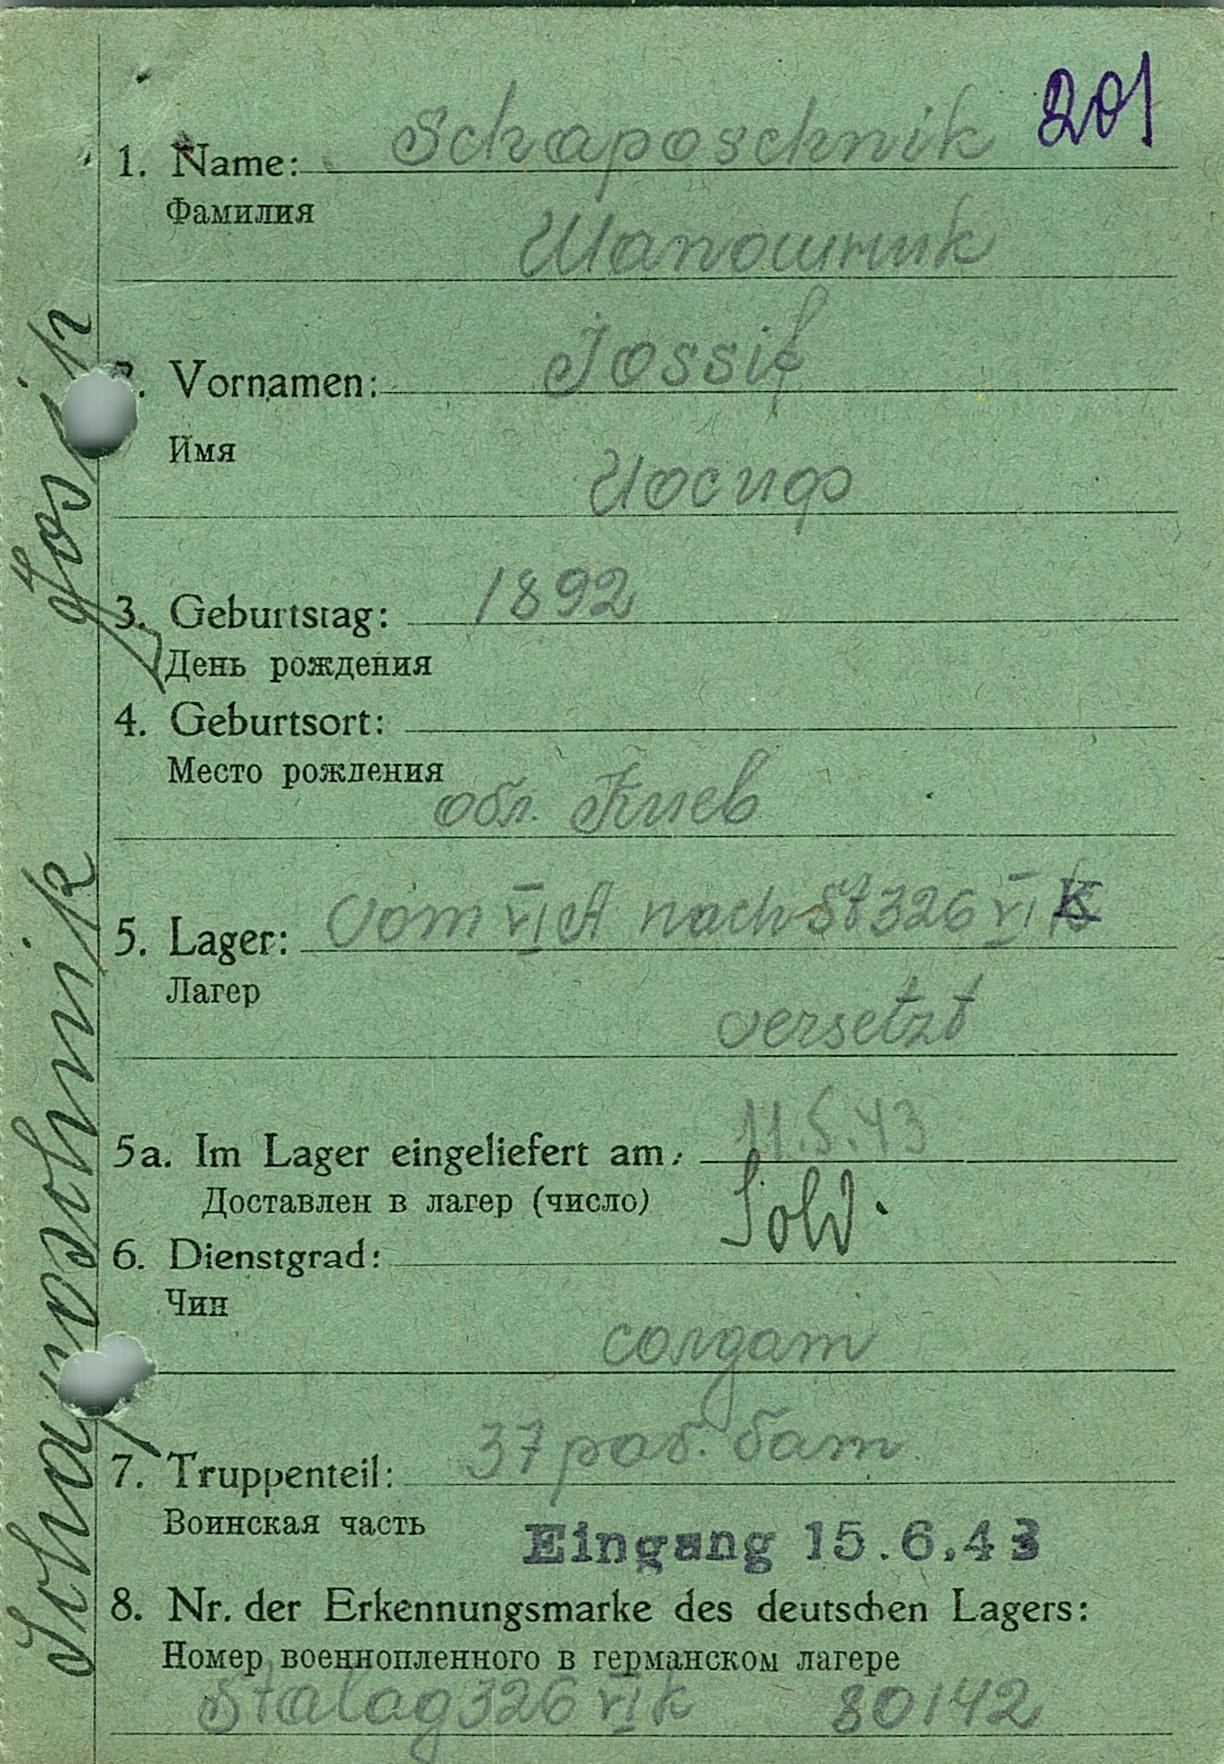 201
1. Name: Schaposchnik
Фамилия
Шапошник
2. Vornamen: Jossif
Имя
Иосиф
3. Geburtstag: 1892
День рождения
4. Geburtsort:
Место рождения
обл. Киев
5. Lager: vom VI A nach St 326 VI K
Лагер
versetzt
5a. Im Lager eingeliefert am: 11.5.43
Доставлен в лагер (число)
Sold.
6. Dienstgrad:
Чин
солдат
7. Truppenteil: 37 раб. бат
Воинская часть
Eingang 15.6.43
8. Nr. der Erkennungsmarke des deutschen Lagers:
Номер военнопленного в германском лагере
Stalag 326 VI k 80142
Schaposchnik, Josip